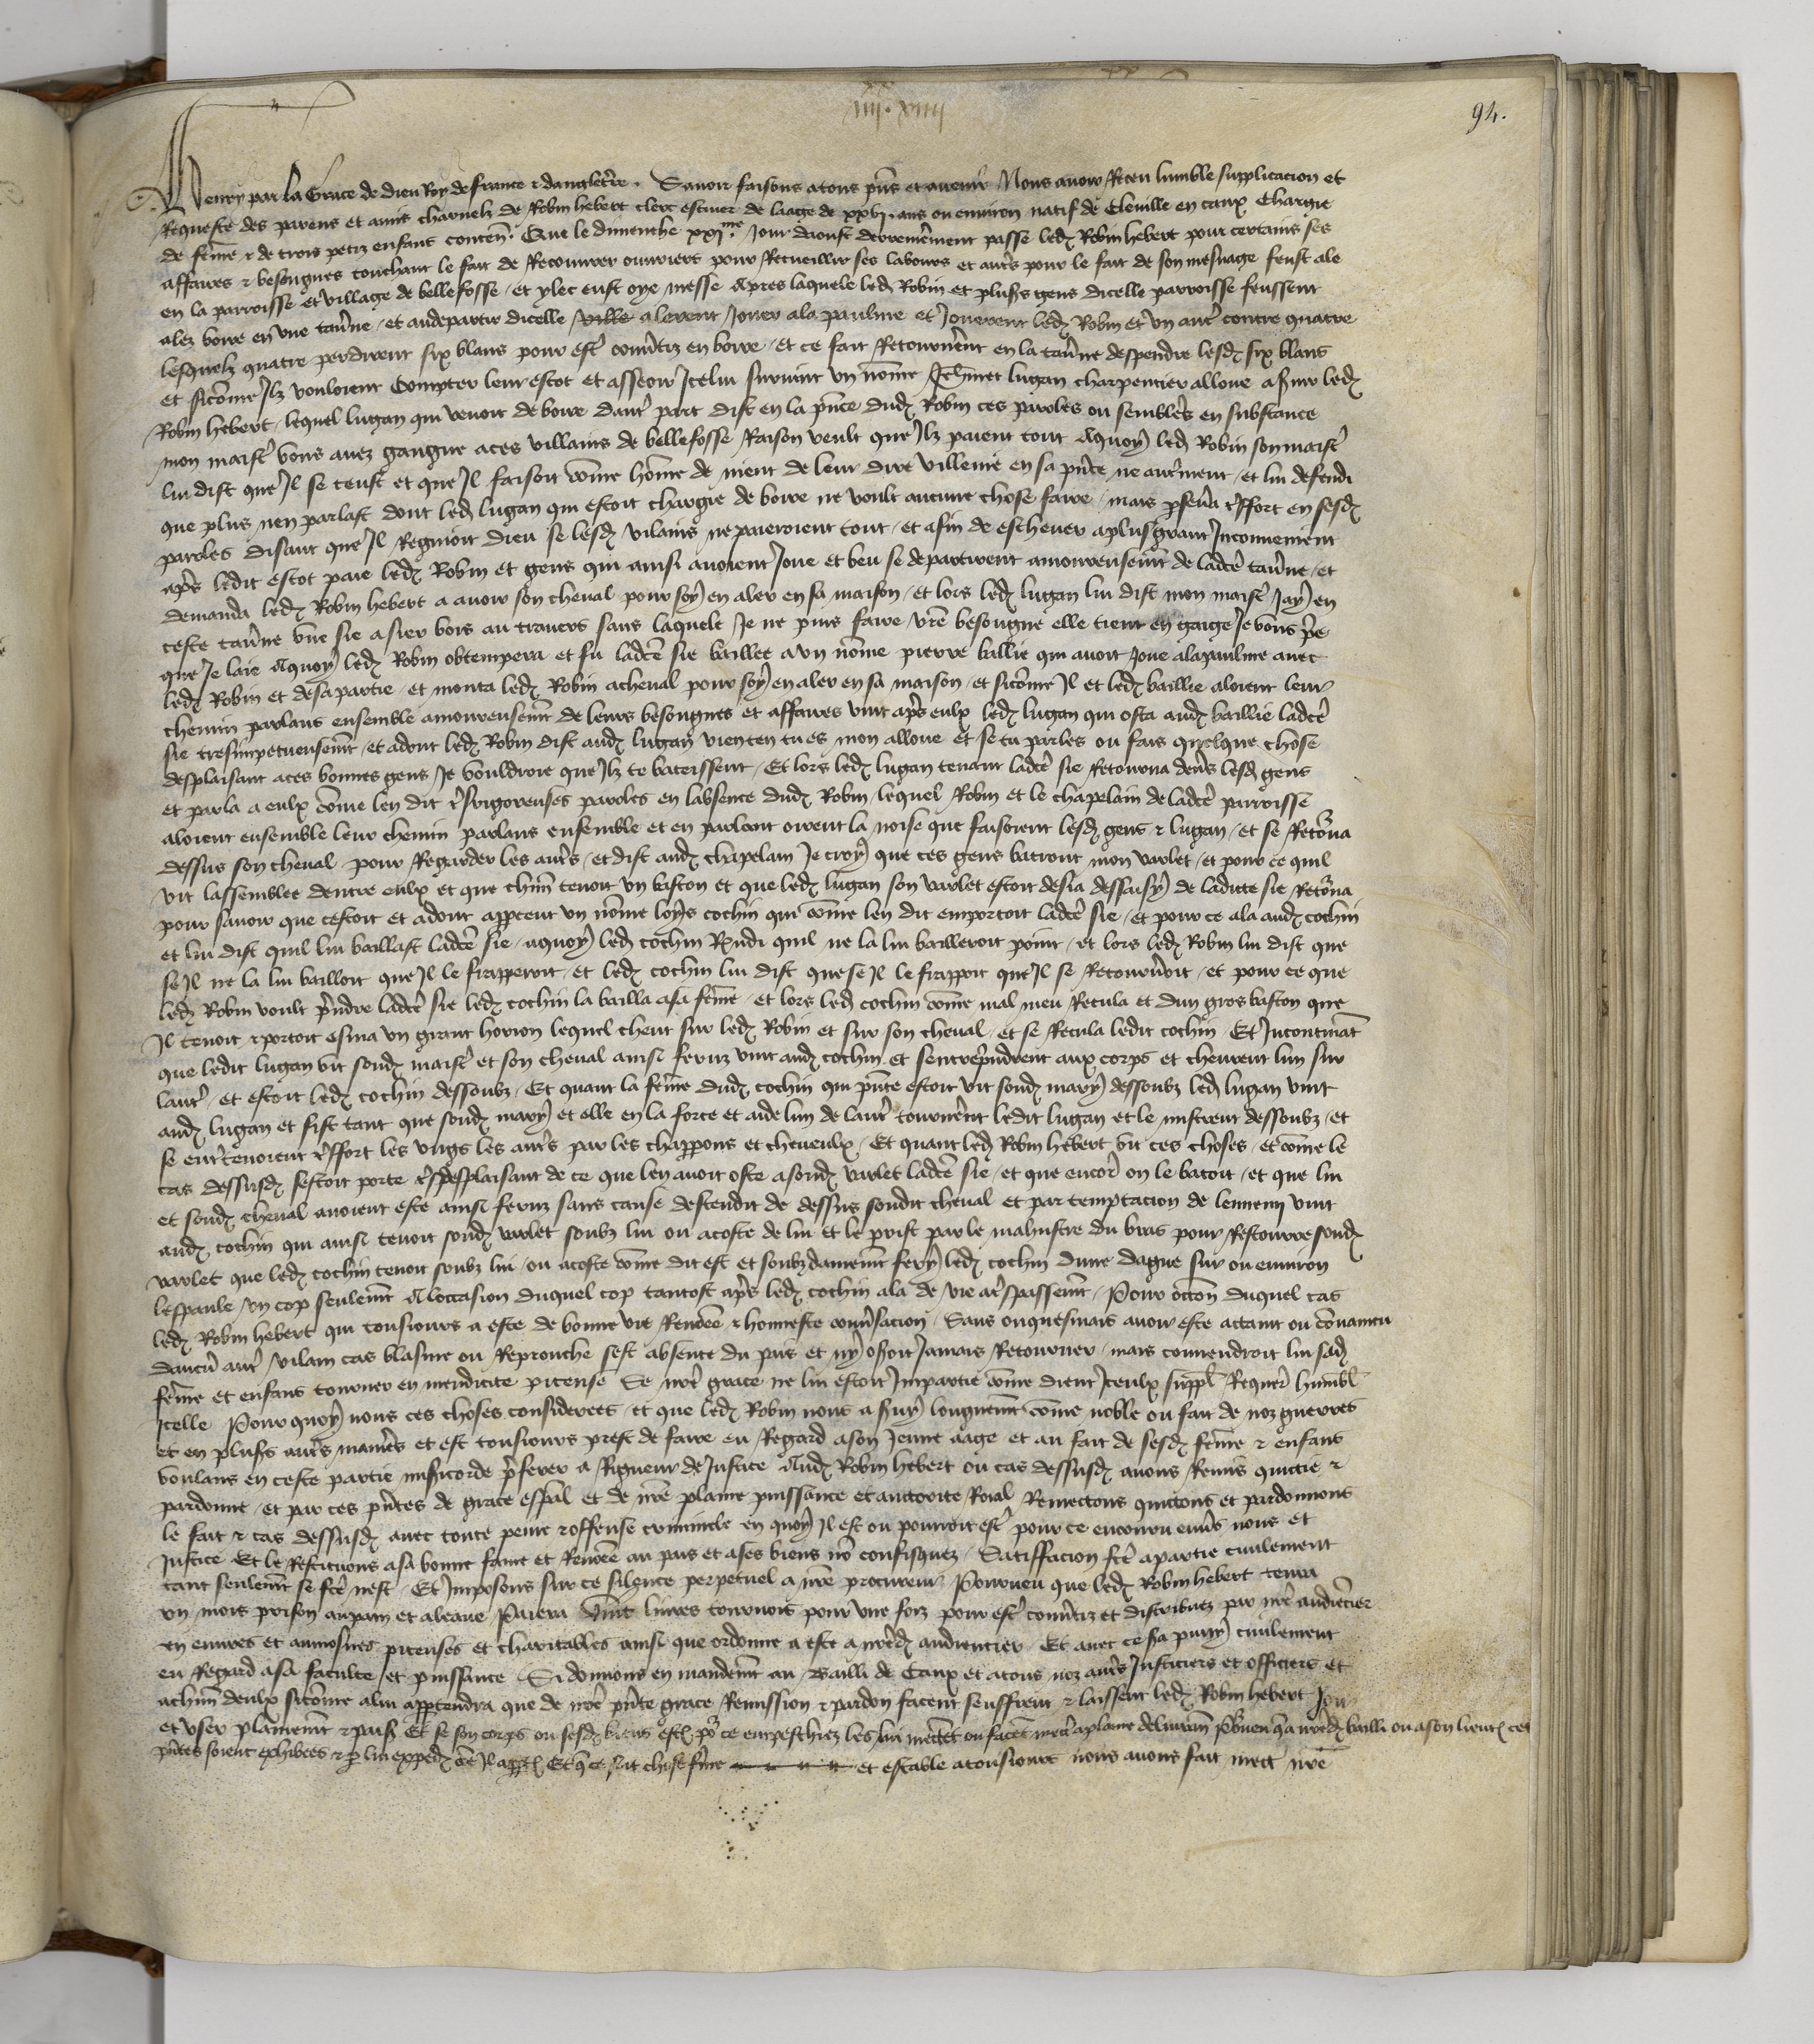 iiii. xiiii
94.
Henry par la Grace de dieu Roy de france & dangletr̃e. Sauoir faisons a tous pñs et auenir Nous auoir Receu lumble supplicacion et
Requeste des parens et amis charnelz de Robin hebert clerc escuier de laage de xxvj. ans ou environ natif de Cleuille en caux Chargie
de fem̃e & de trois petiz enfans conteñ. Que le dimenche xxj.me Jour daoust derreniem̃ent passe led̃ Robin hebert pour certains ses
affaires & besongnes touchant le fait de Recouurer ouuriers pour Recueillir ses labours et autr̃s pour le fait de son mesnage feust ale
en la parroisse et village de bellefosse / et ylec eust oye messe Apres laquele led̃ Robin et plusrs gens dicelle parroisse feussent
alez boire en vne tau̾ne / et au departir dicelle ville alerent Jouer ala paulme et Jouerent led̃ Robin et vn autr̃ contre quatre
lesquelz quatre perdirent six blans pour estr̃ conu̾tiz en boire / et ce fait Retournerẽt en la tau̾ne despendre lesd̃ six blans
et sicom̃e Ilz vouloient Compter leur escot et asseoir Icelui suruint vn nom̃e Jehannet lugan charpentier alloue a s̾uir led̃
Robin hebert / lequel lugan qui venoit de boire dautr̃ part dist en la pñce dud̃ Robin ces paroles ou semblebl̃s en substance
mon maistr̃ vous auez gangne a ces villains de bellefosse Raison veult que Ilz paient tout Aquoy led̃ Robin son maistr̃
lui dist que Il se teust et que Il faisoit com̃e hom̃e de nient de leur dire villenie en sa pñce ne autrem̃ent / et lui defendi
que plus nen parlast dont led̃ lugan qui estoit chargie de boire ne voult aucune chose faire / mais p̱seu̾a tr̃ffort en sesd̃
paroles disant que Il Regnioit dieu se lesd̃ vilains ne paieroient tout / et afin de escheuer a plus grant Inconuenient
apr̃s ledit escot paie led̃ Robin et gens qui ainsi auoient Joue et beu se departirent amoureusem̃t de ladcẽ tau̾ne / et
demanda led̃ Robin hebert a auoir son cheval pour soy en aler en sa maison / et lors led̃ lugan lui dist mon maistr̃ Jay en
ceste tau̾ne vne sie a sier bois au trauers sans laquele Je ne puis faire vrẽ besongne elle tient en gaige Je vous prẽ
que Je laie Aquoy led̃ Robin obtempera et fu ladcẽ sie baillee a vn nom̃e pierre baillie qui auoit Joue ala paulme auec
led̃ Robin et de sa partie / et monta led̃ Robin a cheval pour soy en aler en sa maison / et sicom̃e Il et led̃ baillie aloient leur
chemin parlans ensemble amoureusem̃t de leurs besongnes et affaires vint apr̃s eulx led̃ lugan qui osta aud̃ baillie ladcẽ
sie tresimpetueusem̃t / et adont led̃ Robin dist aud̃ lugan vien ten tu es mon alloue et se tu parles ou fais quelque chose
desplaisant a ces bonnes gens Je vouldroie que Ilz te bateissent / Et lors led̃ lugan tenant ladcẽ sie Retourna deu̾s lesd̃ gens
et parla a eulx com̃e len dit tr̃srigoreuses paroles en labsence dud̃ Robin / lequel Robin et le chapelain de ladcẽ parroisse
aloient ensemble leur chemin parlans ensemble et en parlant oirent la noise que faisoient lesd̃ gens & lugan / et se Retor̃na
dessus son cheval pour Regarder les autr̃s / et dist aud̃ chapelain Je croy que ces gens batront mon varlet / et pour ce quil
vit lassemblee dentre eulx et que chũn tenoit vn baston et que led̃ lugan son varlet estoit desia dessaisy de ladicte sie Retor̃na
pour sauoir que cestoit et adont apperceut vn nom̃e loys cochin qui com̃e len dit emportoit ladcẽ sie / et pour ce ala aud̃ cochin
et lui dist quil lui baillast ladcẽ sie / aquoy led̃ cochin R̃ndi quil ne la lui bailleroit point / et lors led̃ Robin lui dist que
se Il ne la lui bailloit que Il le frapperoit / et led̃ cochin lui dist que se Il le frappoit que Il se Retourneroit / et pour ce que
led̃ Robin voult pr̃ndre ladcẽ sie led̃ cochin la bailla a sa fem̃e / et lors led̃ cochin com̃e mal meu Recula et dun gros baston que
Il tenoit & portoit esma vn grant horion lequel cheut sur led̃ Robin et sur son cheval / et se Recula ledit cochin Et Incontinãt
que ledit lugan vit sond̃ maistr̃ et son cheval ainsi feruz vint aud̃ cochin et sentrepr̃indrent aux corps et cheurent lun sur
lautr̃ / et estoit led̃ cochin dessoubz / Et quant la fem̃e dud̃ cochin qui pñte estoit vit sond̃ mary dessoubz led̃ lugan vint
aud̃ lugan et fist tant que sond̃ mary et elle en la force et aide lun de lautr̃ tournerẽt ledit lugan et le mistrent dessoubz / et
se entr̃tenoient tr̃ffort les vngs les autr̃s par les chapperons et cheueulx / Et quant led̃ Robin hebert vit ces choses / et com̃e le
cas dessusd̃ sestoit porte tr̃sdesplaisant de ce que len auoit oste a sond̃ varlet ladcẽ sie / et que encor̃ on le batoit / et que lui
et sond̃ cheval auoient este ainsi feruz sans cause descendit de dessus sondit cheval et par temptacion de lennemi vint
aud̃ cochin qui ainsi tenoit sond̃ varlet soubz lui ou acoste de lui et le prist par le malustre du bras pour Rescourre sond̃
varlet que led̃ cochin tenoit soubz lui / ou acoste com̃e dit est et soubzdainem̃t fery led̃ cochin dune dague sur ou environ
lespaule vn cop seulem̃t A loccasion duquel cop tantost apr̃s led̃ cochin ala de vie a tr̃spassem̃t / Pour occõn duquel cas
led̃ Robin hebert qui tousiours a este de bonne vie Renõmee & honneste conu̾sacion / Sans onquesmais auoir este attaint ou cõuaincu
daucũ autr̃ vilain cas blasme ou Reprouche sest absente du pais et ny oseroit Jamais Retourner / mais conuendroit lui sad̃
fem̃e et enfans tourner en mendicite piteuse Se nr̃e grace ne lui estoit Impartie com̃e dient Iceulx suppl̃ Requer̃ humbl̃
Icelle Pourquoy nous ces choses considerees / et que led̃ Robin nous a s̾uy longuem̃t com̃e noble ou fait de noz guerres
et en plusrs autr̃s manier̃s et est tousiours prest de faire eu Regard a son Jeune aage et au fait de sesd̃ fem̃e & enfans
voulans en ceste partie mis̾icorde pr̃ferer a Rigueur de Justice Aud̃ Robin hebert ou cas dessusd̃ auons Remis quictie &
pardonne / et par ces pñtes de grace esp̃al et de nr̃e plaine puissance et auctorite Roial Remectons quictons et pardonnons
le fait & cas dessusd̃ auec toute peine & offense criminele en quoy Il est ou pourroit estr̃ pour ce encouru enu̾s nous et
Justice Et le Restituons a sa bonne fame et Renõmee au pais et a ses biens nõ confisquez / Satiffacion fcẽ a partie ciuilement
tant seulem̃t se fcẽ nest / Et Imposons sur ce silence perpetuel a nr̃e procureur Pourueu que led̃ Robin hebert tenra
vn mois prison au pain et a leaue Paiera vint liures tournois pour vne foiz pour estr̃ conu̾tiz et distribuez par nr̃e audiencier
en euures et aumosnes piteuses et charitables ainsi que ordonne a este a nr̃ed̃ audiencier Et auec ce s̾a puny ciuilement
eu Regard a sa faculte et puissance Si donnons en mandem̃t au Bailli de Caux et a tous noz autr̃s Justiciers et officiers et
a chũn deulx sicom̃e a lui appartendra que de nr̃e pñte grace Remission & pardon facent seuffrent & laissent led̃ Robin hebert Joir
et vser plainem̃t & paisi Et se son corps ou sesd̃ biens est̃ por̃ ce empeschiez les lui mectẽt ou facẽt mectr̃ a plaine deliurañ Pourueu q̃ a nr̃ed̃ bailli ou a son lieuteñ ces
pñtes soient exhibees & p̱ lui exped̃ cõe Il appt̃ Et q̃ ce soit chose fer̃me et estable a tousiours nous auons fait mectr̃ nr̃e